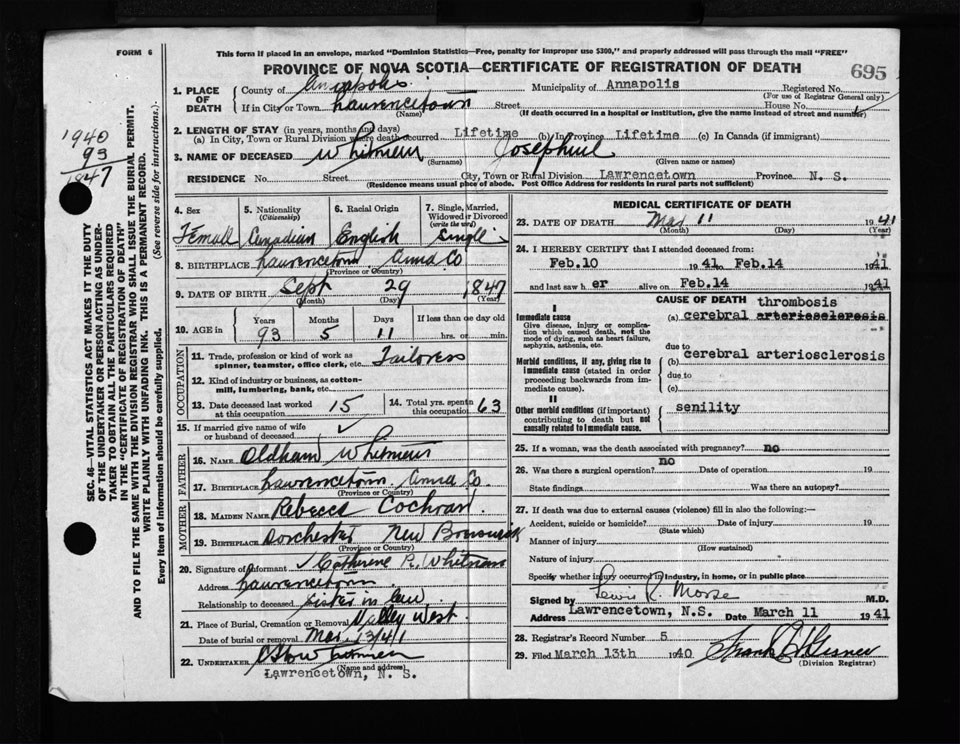 FORM 6
This form if placed in an envelope, marked "Dominion Statistics—Free, penalty for improper use $300," and properly addressed will pass through the mail "FREE"
PROVINCE OF NOVA SCOTIA—CERTIFICATE OF REGISTRATION OF DEATH
695
1940
93
1847
SEC. 46—VITAL STATISTICS ACT MAKES IT THE DUTY
OF THE UNDERTAKER OR PERSON ACTING AS UNDER-
TAKER TO OBTAIN ALL THE PARTICULARS REQUIRED
IN THE "CERTIFICATE OF REGISTRATION OF DEATH"
AND TO FILE THE SAME WITH THE DIVISION REGISTRAR WHO SHALL ISSUE THE BURIAL PERMIT.
WRITE PLAINLY WITH UNFADING INK. THIS IS A PERMANENT RECORD.
Every item of information should be carefully supplied. (See reverse side for instructions.)
1. PLACE OF DEATH County of Annapolis Municipality of Annapolis Registered No.
(For use of Registrar General only)
If in City or Town Lawrencetown Street House No.
(Name) (If death occurred in a hospital or institution, give the name instead of street and number)
2. LENGTH OF STAY (in years, months and days)
(a) In City, Town or Rural Division where death occurred Lifetime (b) In Province Lifetime (c) In Canada (if immigrant)
3. NAME OF DECEASED Whitman Josephine
(Surname) (Given name or names)
RESIDENCE No. Street City, Town or Rural Division Lawrencetown Province N. S.
(Residence means usual place of abode. Post Office Address for residents in rural parts not sufficient)
4. Sex 5. Nationality (Citizenship) 6. Racial Origin 7. Single, Married, Widowed or Divorced (write the word)
Female Canadian English Single
8. BIRTHPLACE Lawrencetown Anna Co
(Province or Country)
9. DATE OF BIRTH Sept 29 1847
(Month) (Day) (Year)
10. AGE in Years Months Days If less than one day
93 5 11 hrs. or min.
OCCUPATION
11. Trade, profession or kind of work as spinner, teamster, office clerk, etc. Tailoress
12. Kind of industry or business, as cotton-mill, lumbering, bank, etc.
13. Date deceased last worked at this occupation 15 14. Total yrs. spent in this occupation 63
15. If married give name of wife or husband of deceased ✓
FATHER
16. Name Oldham Whitman
17. Birthplace Lawrencetown Anna Co.
(Province or Country)
MOTHER
18. Maiden Name Rebecca Cochran
19. Birthplace Dorchester New Brunswick
(Province or Country)
20. Signature of Informant Catherine R. Whitman
Address Lawrencetown
Relationship to deceased sister in law
21. Place of Burial, Cremation or Removal Valley West
Date of burial or removal Mar. 13/41
22. UNDERTAKER
(Name and address)
Lawrencetown, N. S.
MEDICAL CERTIFICATE OF DEATH
23. DATE OF DEATH Mar 11 1941
(Month) (Day) (Year)
24. I HEREBY CERTIFY that I attended deceased from
Feb.10 1941 to Feb.14 1941
and last saw h er alive on Feb.14 1941
CAUSE OF DEATH thrombosis
I
Immediate cause (a) cerebral arteriosclerosis
Give disease, injury or complication which caused death, not the mode of dying, such as heart failure, asphyxia, asthenia, etc.
due to
Morbid conditions, if any, giving rise to immediate cause (stated in order proceeding backwards from immediate cause). (b) cerebral arteriosclerosis
due to
(c)
II
Other morbid conditions (if important) contributing to death but not causally related to immediate cause. senility
25. If a woman, was the death associated with pregnancy? no
26. Was there a surgical operation? no Date of operation 19
State findings Was there an autopsy?
27. If death was due to external causes (violence) fill in also the following:—
Accident, suicide or homicide? Date of injury 19
(State which)
Manner of injury
(How sustained)
Nature of injury
Specify whether injury occurred in industry, in home, or in public place
Signed by Lewis R. Morse M.D.
Address Lawrencetown, N.S. Date March 11 1941
28. Registrar's Record Number 5
29. Filed March 13th 1940 Frank
(Division Registrar)